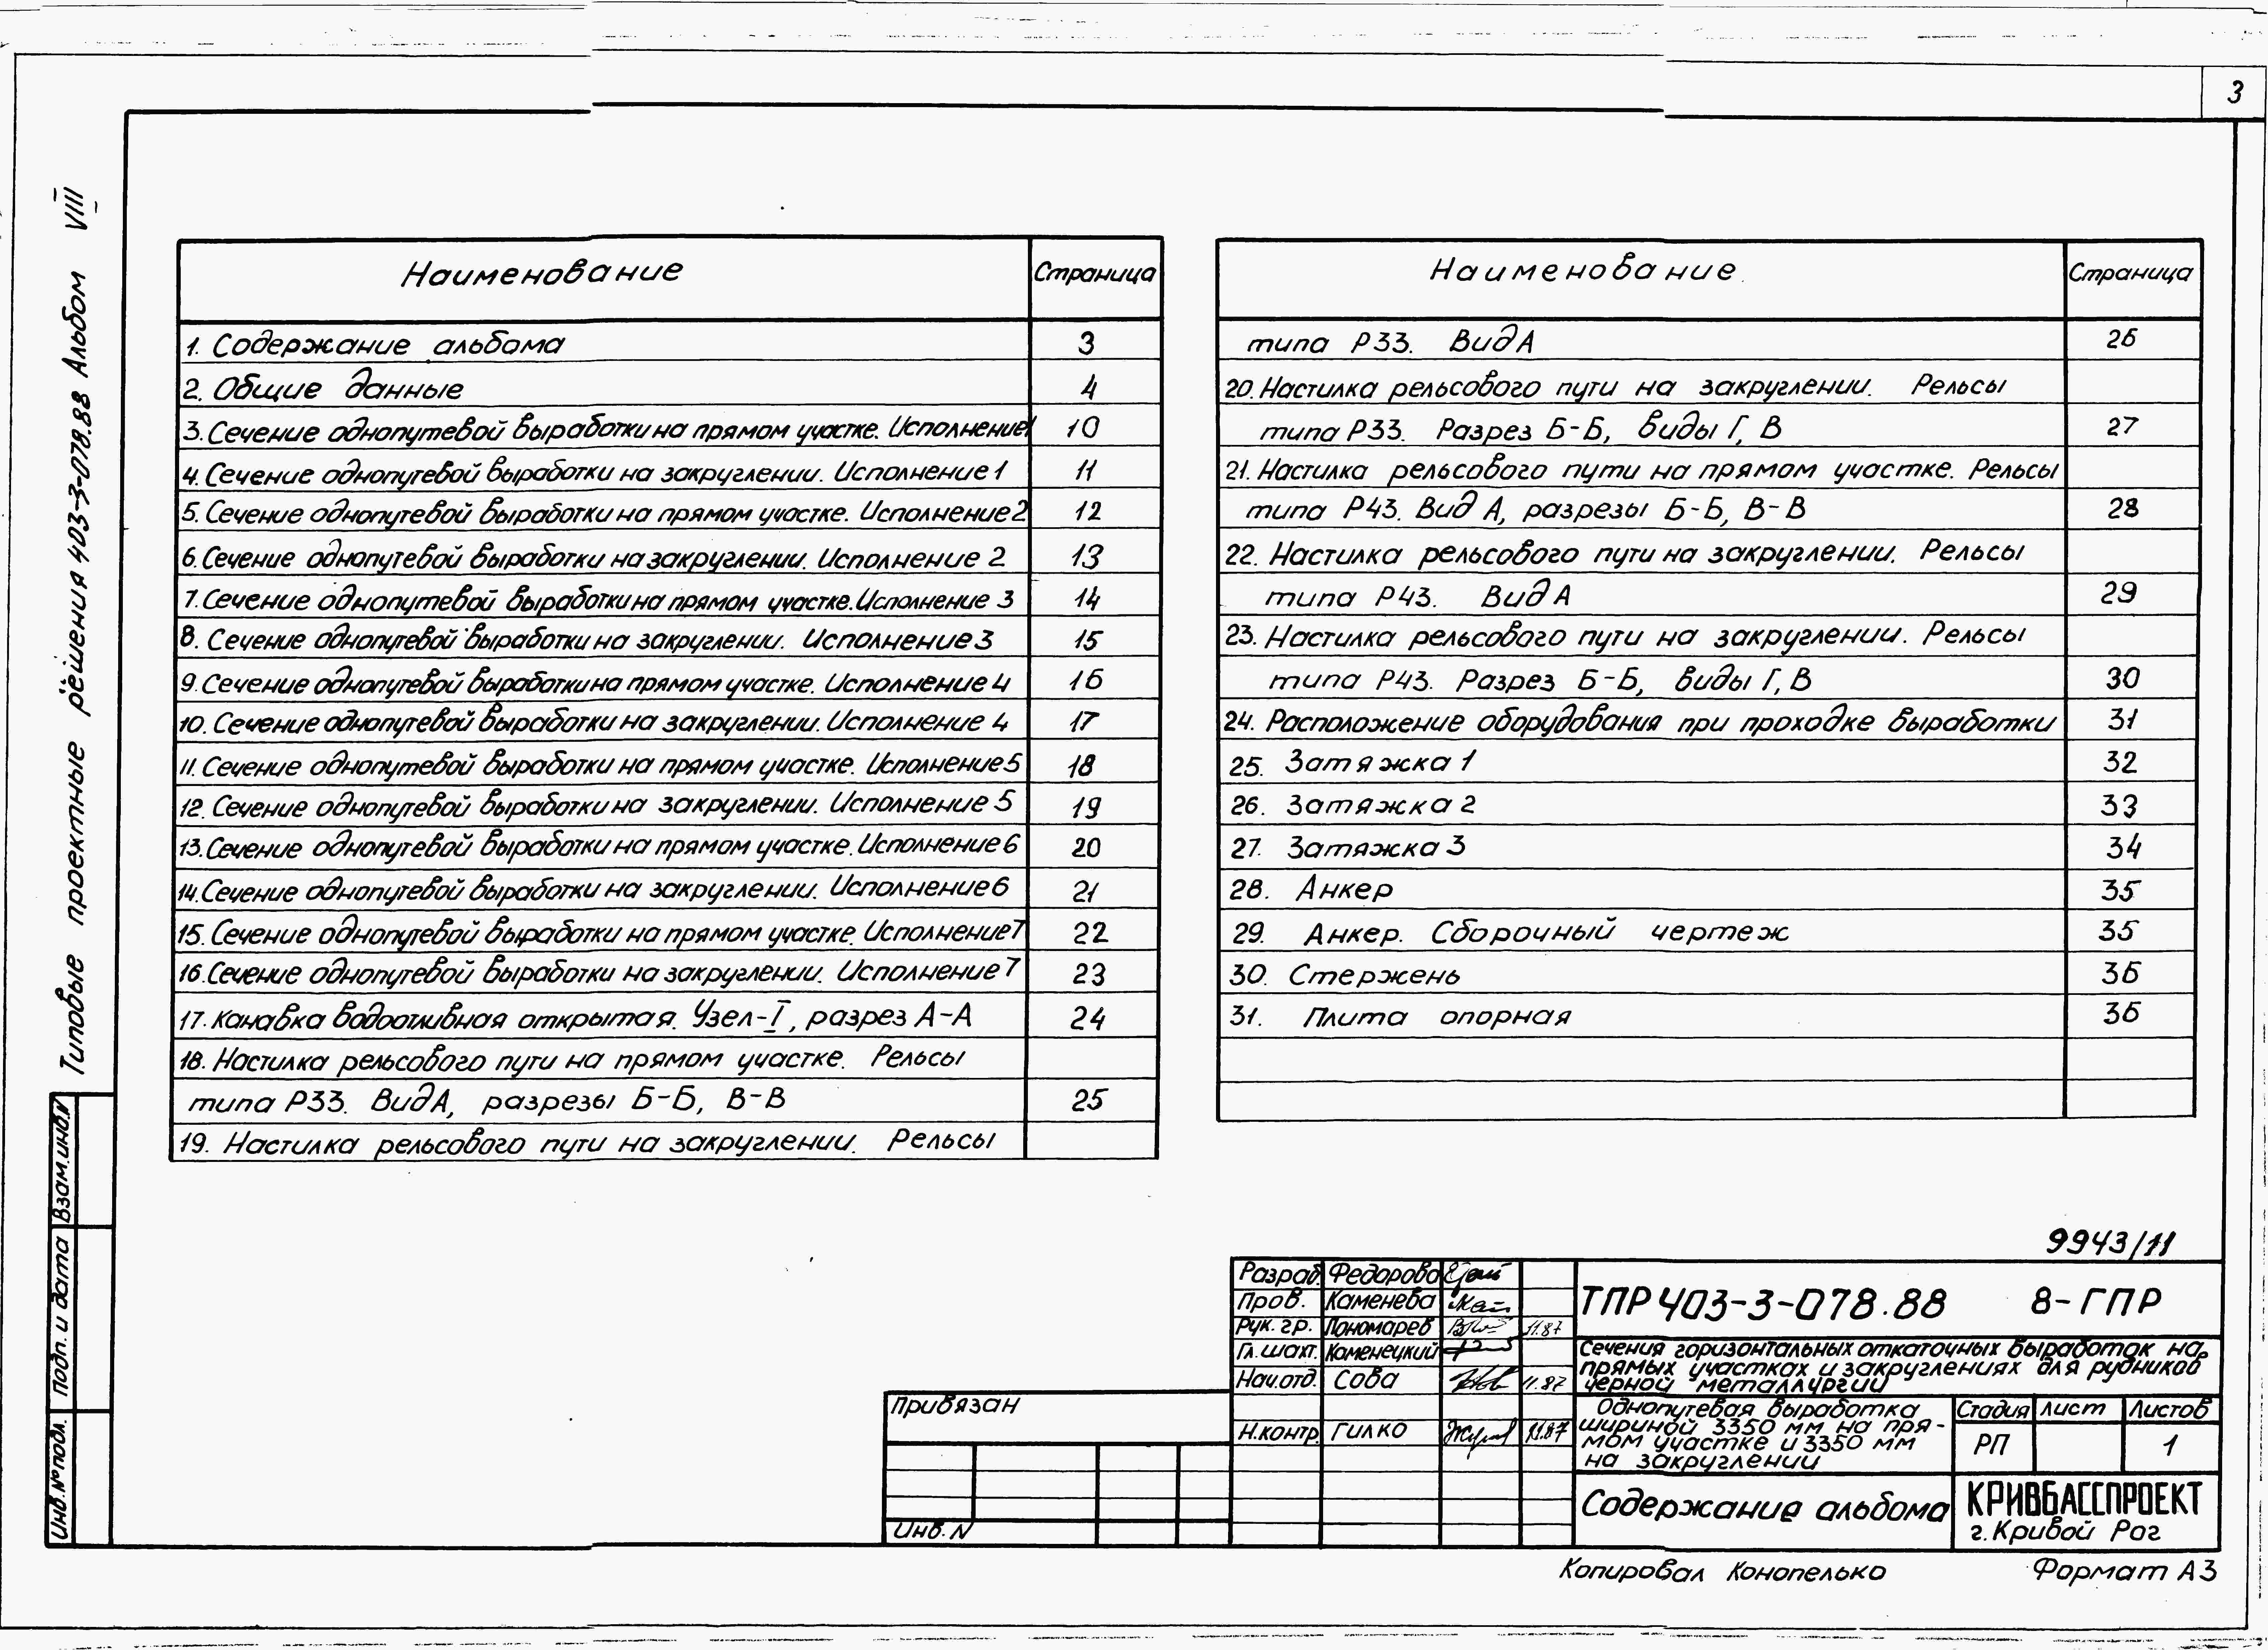 3
Типовые проектные решения 403-3-078.88 Альбом VIII
Наименование Страница
1. Содержание альбома 3
2. Общие данные 4
3. Сечение однопутевой выработки на прямом участке. Исполнение 1 10
4. Сечение однопутевой выработки на закруглении. Исполнение 1 11
5. Сечение однопутевой выработки на прямом участке. Исполнение 2 12
6. Сечение однопутевой выработки на закруглении. Исполнение 2 13
7. Сечение однопутевой выработки на прямом участке. Исполнение 3 14
8. Сечение однопутевой выработки на закруглении. Исполнение 3 15
9. Сечение однопутевой выработки на прямом участке. Исполнение 4 16
10. Сечение однопутевой выработки на закруглении. Исполнение 4 17
11. Сечение однопутевой выработки на прямом участке. Исполнение 5 18
12. Сечение однопутевой выработки на закруглении. Исполнение 5 19
13. Сечение однопутевой выработки на прямом участке. Исполнение 6 20
14. Сечение однопутевой выработки на закруглении. Исполнение 6 21
15. Сечение однопутевой выработки на прямом участке. Исполнение 7 22
16. Сечение однопутевой выработки на закруглении. Исполнение 7 23
17. Канавка водоотливная открытая. Узел-I, разрез А-А 24
18. Настилка рельсового пути на прямом участке. Рельсы
типа Р33. Вид А, разрезы Б-Б, В-В 25
19. Настилка рельсового пути на закруглении. Рельсы
Наименование Страница
типа Р33. Вид А 26
20. Настилка рельсового пути на закруглении. Рельсы
типа Р33. Разрез Б-Б, виды Г, В 27
21. Настилка рельсового пути на прямом участке. Рельсы
типа Р43. Вид А, разрезы Б-Б, В-В 28
22. Настилка рельсового пути на закруглении. Рельсы
типа Р43. Вид А 29
23. Настилка рельсового пути на закруглении. Рельсы
типа Р43. Разрез Б-Б, виды Г, В 30
24. Расположение оборудования при проходке выработки 31
25. Затяжка 1 32
26. Затяжка 2 33
27. Затяжка 3 34
28. Анкер 35
29. Анкер. Сборочный чертеж 35
30. Стержень 36
31. Плита опорная 36
Взам.инв.N
Подп. и дата
Инв.№ подл.
9943/11
Разраб. Федорова
Пров. Каменева
Рук. гр. Пономарев 11.87
Гл.шахт. Каменецкий
Нач.отд. Сова 11.87
Н.контр. Гилко 11.87
Привязан
Инв. N
ТПР 403-3-078.88 8-ГПР
Сечения горизонтальных откаточных выработок на
прямых участках и закруглениях для рудников
черной металлургии
Однопутевая выработка
шириной 3350 мм на пря-
мом участке и 3350 мм
на закруглении
Стадия Лист Листов
РП 1
Содержание альбома
КРИВБАССПРОЕКТ
г. Кривой Рог
Копировал Конопелько Формат А3